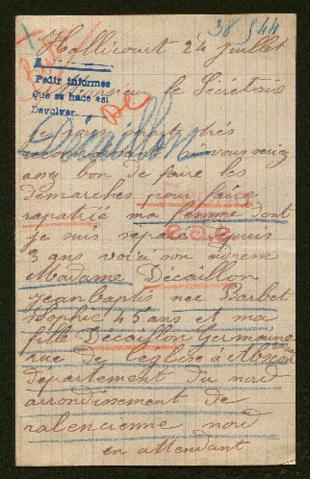 38 944
Hallicourt 24 juillet
Monsieur le Secrétaire
Pedir informes
Que se hace así
Devolver
Décaillon
Je serais très
reconnaissant si vous seriez
bon de faire les
démarches pour faire
rapatrié ma femme dont
je suis separé depuis
3 ans voici son adresse
Madame Décaillon
jeanbaptis neé Barbet
Sophie 45 ans et ma
fille Décaillon Germaine
rue de l'église à Abscon
département du nord
arrondisment de
valencienne nord
en attendant